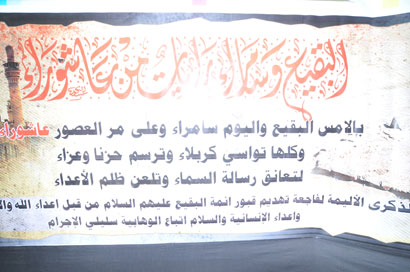 البقيع وسامراء رايات من عاشوراء
بالامس البقيع واليوم سامراء وعلى مر العصور عاشوراء
وكلها تواسي كربلاء وترسم حزنا وعزاء
لتعانق رسالة السماء وتلعن ظلم الأعداء
لذكرى الأليمة لفاجعة تهديم قبور ائمة البقيع عليهم السلام من قبل اعداء الله وال
واعداء الإنسانية والسلام اتباع الوهابية سليلي الإجرام